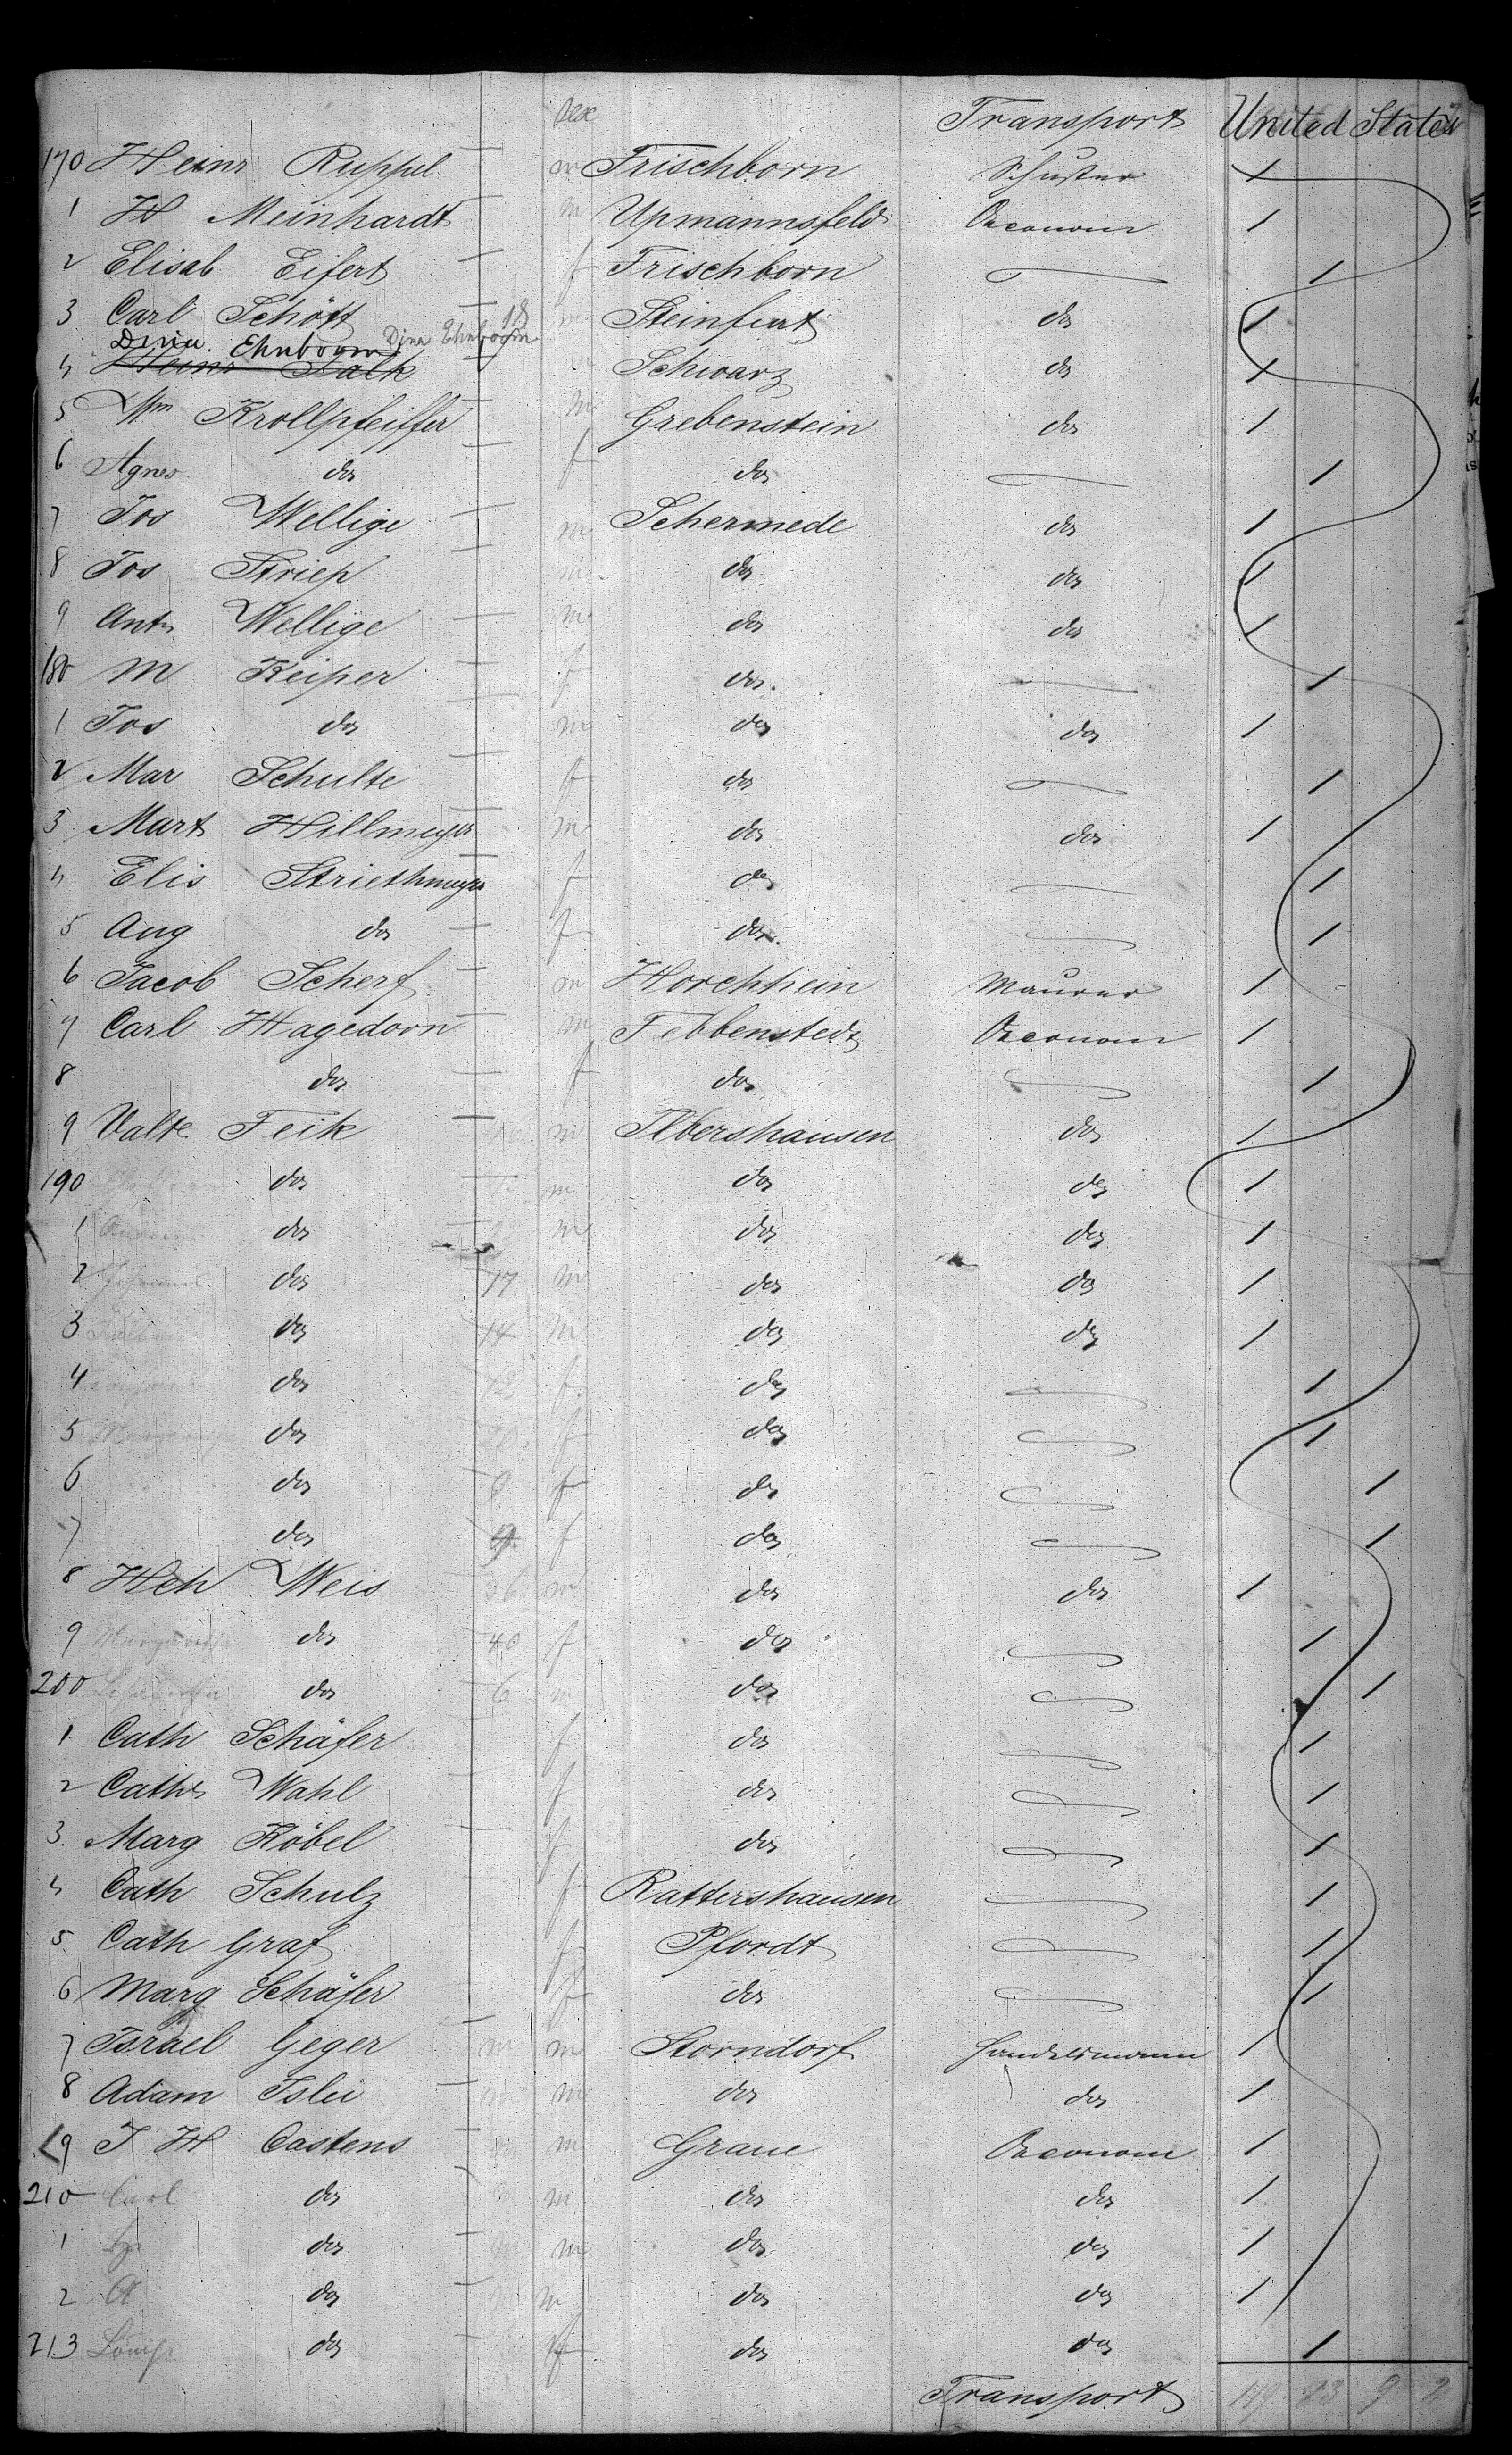 sex Transport United States
170 Heinr Ruppel — m Frischborn Schuster /
1 H Meinhardt — m Upmannsfeld Oeconom /
2 Elisab Eifert — f Frischborn — /
3 Carl Schött — 18 m Steinfurt do /
Dina Ehnbogen Dina Ehnbogen
4 Heinr Falk — m Schwarz do /
5 Wm Krollpfeiffer — m Grebenstein do /
6 Agnes do — f do — /
7 Jos Wellige — m Schermede do /
8 Jos Striep — m do do /
9 Ant Wellige — m do do /
180 M Keiper — f do — /
1 Jos do — m do do /
2 Mar Schulte — f do — /
3 Mart Hillmeyer — m do do /
4 Elis Striethmeyer — f do — /
5 Aug do — f do — /
6 Jacob Scherf — m Horchhein Maurer /
7 Carl Hagedorn — m Tebbenstedt Oeconom /
8 do — f do — /
9 Valt Feik — m Ilbershausen do /
190 do m do do /
1 do m do do /
2 do 17 m do do /
3 do 14 m do do /
4 do 12 f do — /
5 do 20 f do — /
6 do 9 f do — /
7 do 9 f do — /
8 Hch Weis 36 m do do /
9 Margareth do 40 f do — /
200 do 6 m do — /
1 Cath Schäfer f do — /
2 Cath Wahl f do — /
3 Marg Köbel f do — /
4 Cath Schulz f Rattershausen — /
5 Cath Graf f Pfordt — /
6 Marg Schäfer f do — /
7 Israel Geger — m m Storndorf Handelsmann /
8 Adam Islei — m m do do /
9 J H Castens — m m Graue Oeconom /
210 Carl do — m do do /
1 do — m do do /
2 A do — m do do /
213 do — f do do /
Transport 119 83 9 2